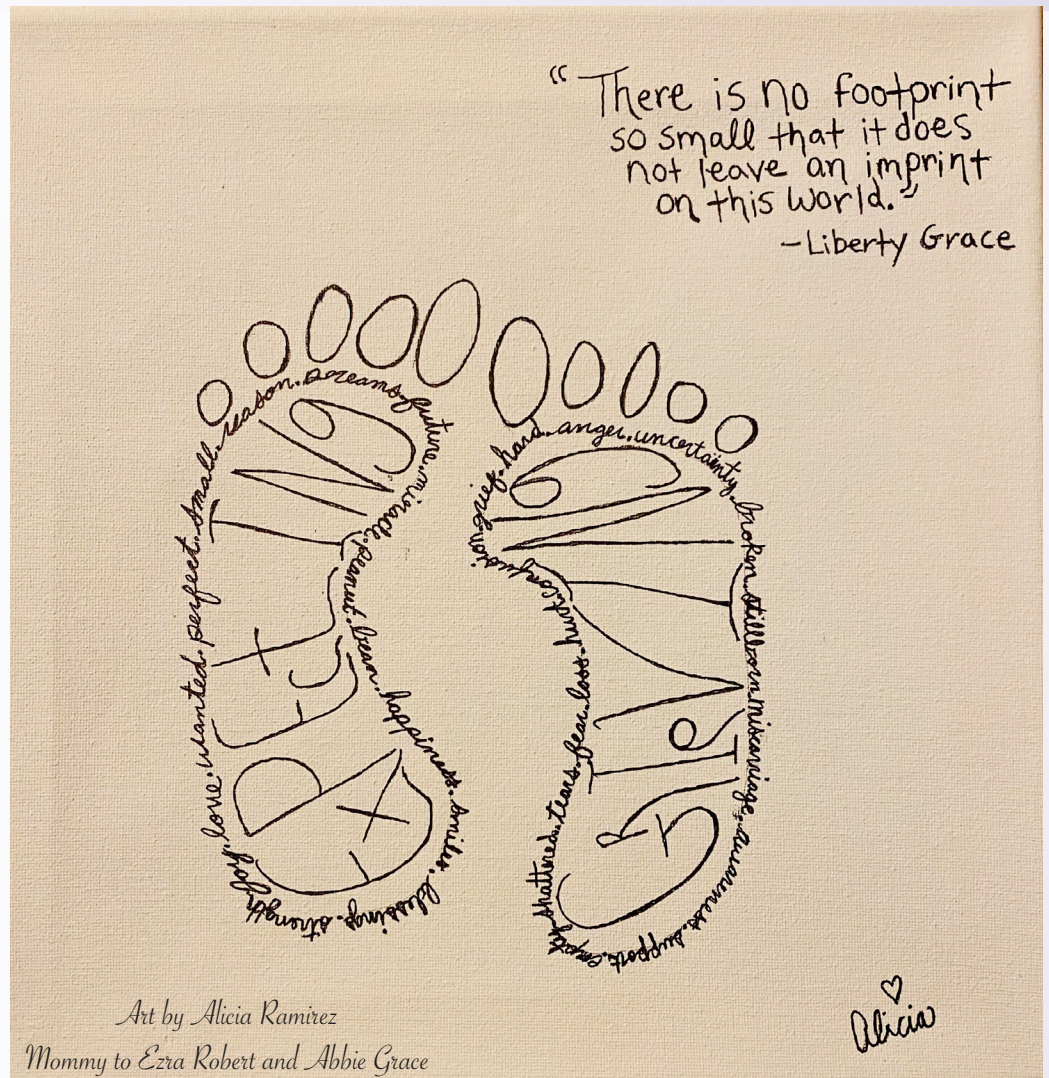 “There is no footprint
so small that it does
not leave an imprint
on this world.”
-Liberty Grace
love. wanted. perfect. small. reason. dreams. future. miracle. peanut. bean. happiness. smiles. blessings. strength
EXPECTING
grief. hard. anger. uncertainty. broken. stillborn. miscarriage. awareness. support. empty. shattered. tears. fear. loss. hurt. confusion
GRIEVING
Alicia
Art by Alicia Ramirez
Mommy to Ezra Robert and Abbie Grace